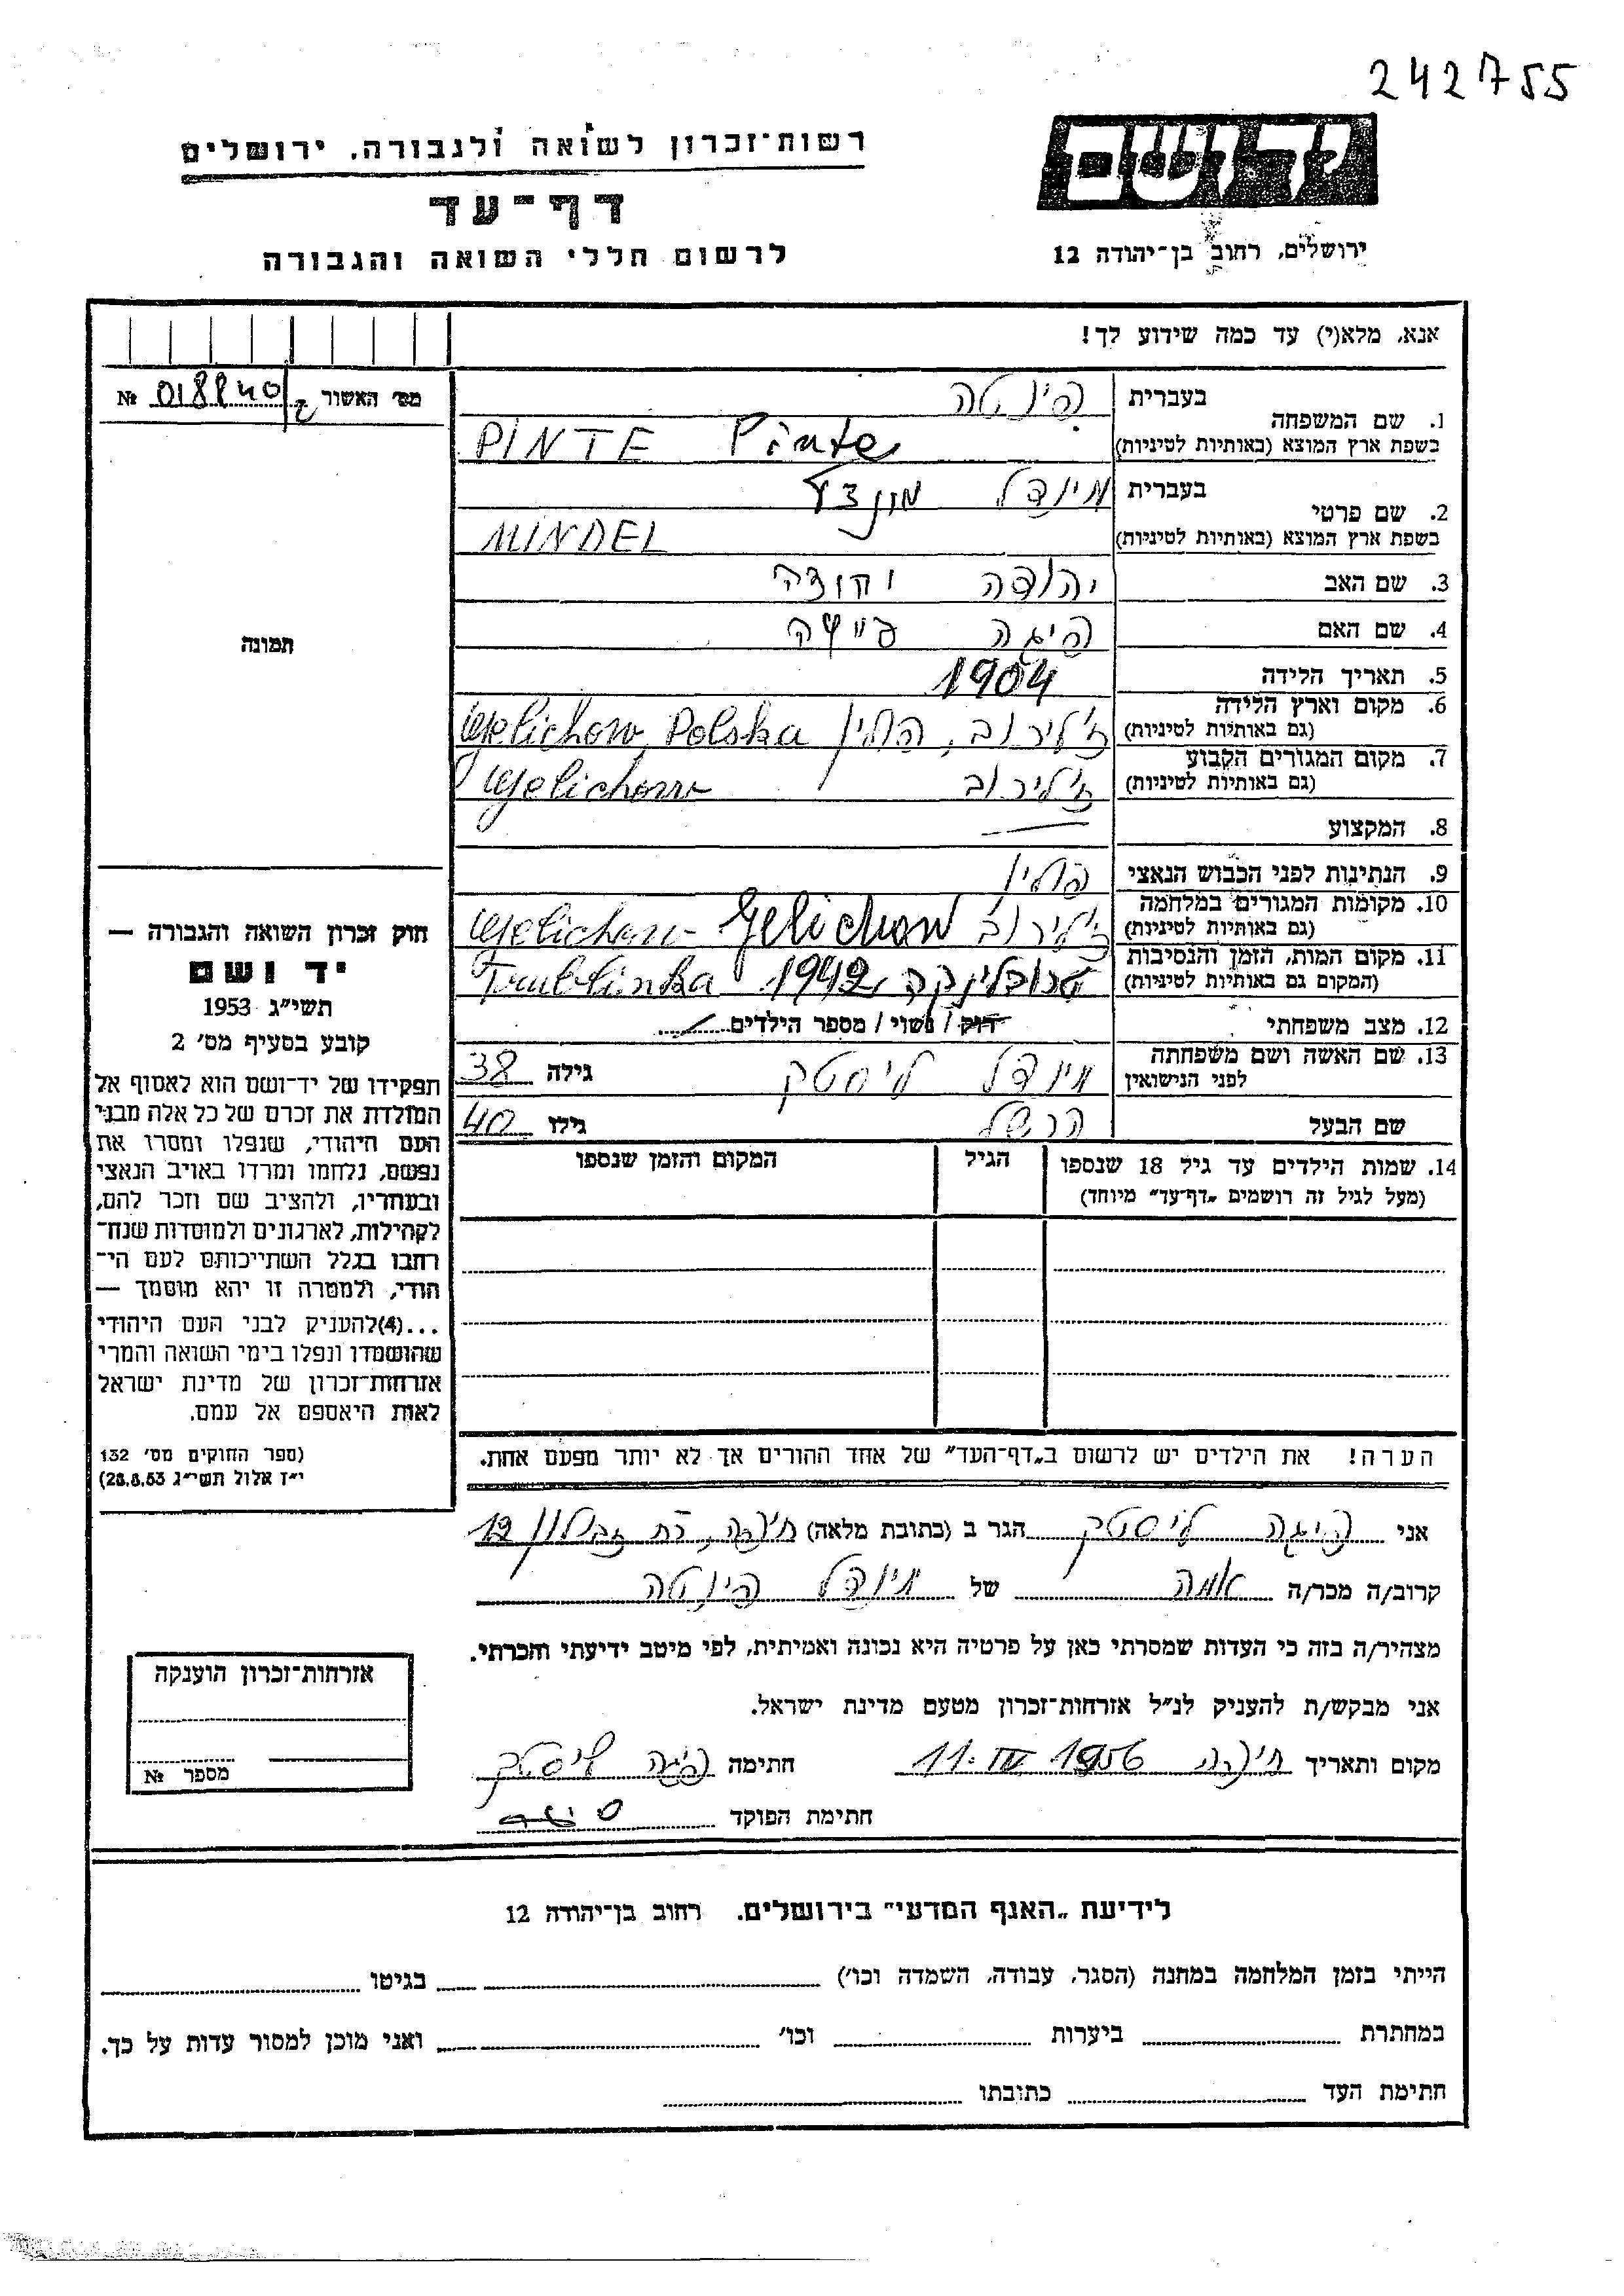 242755
רשות־זכרון לשואה ולגבורה, ירושלים
יד ושם
דף־עד
לרשום חללי השואה והגבורה
ירושלים, רחוב בן־יהודה 12
אנא, מלא(י) עד כמה שידוע לך!
מס׳ האשור № 018840
1. שם המשפחה
בעברית פינטה
בשפת ארץ המוצא (באותיות לטיניות) PINTE Pinte
2. שם פרטי
בעברית מינדל
בשפת ארץ המוצא (באותיות לטיניות) MINDEL
3. שם האב יהודה
4. שם האם פיגה
5. תאריך הלידה 1904
6. מקום וארץ הלידה
(גם באותיות לטיניות) ז'ליכוב, פולין Polska
7. מקום המגורים הקבוע
(גם באותיות לטיניות) ז'ליכוב
8. המקצוע
9. הנתינות לפני הכבוש הנאצי פולין
10. מקומות המגורים במלחמה
(גם באותיות לטיניות) ז'ליכוב Gelichow
11. מקום המות, הזמן והנסיבות
(המקום גם באותיות לטיניות) טרובלינקה 1942 Traublinka
12. מצב משפחתי רוק / נשוי / מספר הילדים
13. שם האשה ושם משפחתה
לפני הנישואין מינדל ליסטק גילה 38
שם הבעל הרשל גילו 40
14. שמות הילדים עד גיל 18 שנספו
(מעל לגיל זה רושמים „דף־עד״ מיוחד)
הגיל
המקום והזמן שנספו
תמונה
חוק זכרון השואה והגבורה —
יד ושם
תשי״ג 1953
קובע בסעיף מס׳ 2
תפקידו של יד־ושם הוא לאסוף אל
המולדת את זכרם של כל אלה מבני
העם היהודי, שנפלו ומסרו את
נפשם, נלחמו ומרדו באויב הנאצי
ובעוזריו, ולהציב שם וזכר להם,
לקהילות, לארגונים ולמוסדות שנח־
רחבו בגלל השתייכותם לעם הי־
הודי, ולמטרה זו יהא מוסמך —
...(4)להעניק לבני העם היהודי
שהושמדו ונפלו בימי השואה והמרי
אזרחות־זכרון של מדינת ישראל
לאות היאספם אל עמם.
(ספר החוקים מס׳ 132
י״ז אלול תשי״ג 28.8.53)
הערה! את הילדים יש לרשום ב„דף־העד״ של אחד ההורים אך לא יותר מפעם אחת.
אני פיגה ליסטק הגר ב (כתובת מלאה) חיפה, רח זבולון 12
קרוב/ה מכר/ה אמה של מינדל פינטה
מצהיר/ה בזה כי העדות שמסרתי כאן על פרטיה היא נכונה ואמיתית, לפי מיטב ידיעתי והכרתי.
אני מבקש/ת להעניק לנ״ל אזרחות־זכרון מטעם מדינת ישראל.
מקום ותאריך חיפה 11.IV 1956 חתימה פיגה ליסטק
חתימת הפוקד
אזרחות־זכרון הוענקה
מספר №
לידיעת „האנף המדעי״ בירושלים. רחוב בן־יהודה 12
הייתי בזמן המלחמה במחנה (הסגר, עבודה, השמדה וכו׳) בגיטו
במחתרת ביערות וכו׳ ואני מוכן למסור עדות על כך.
חתימת העד כתובתו